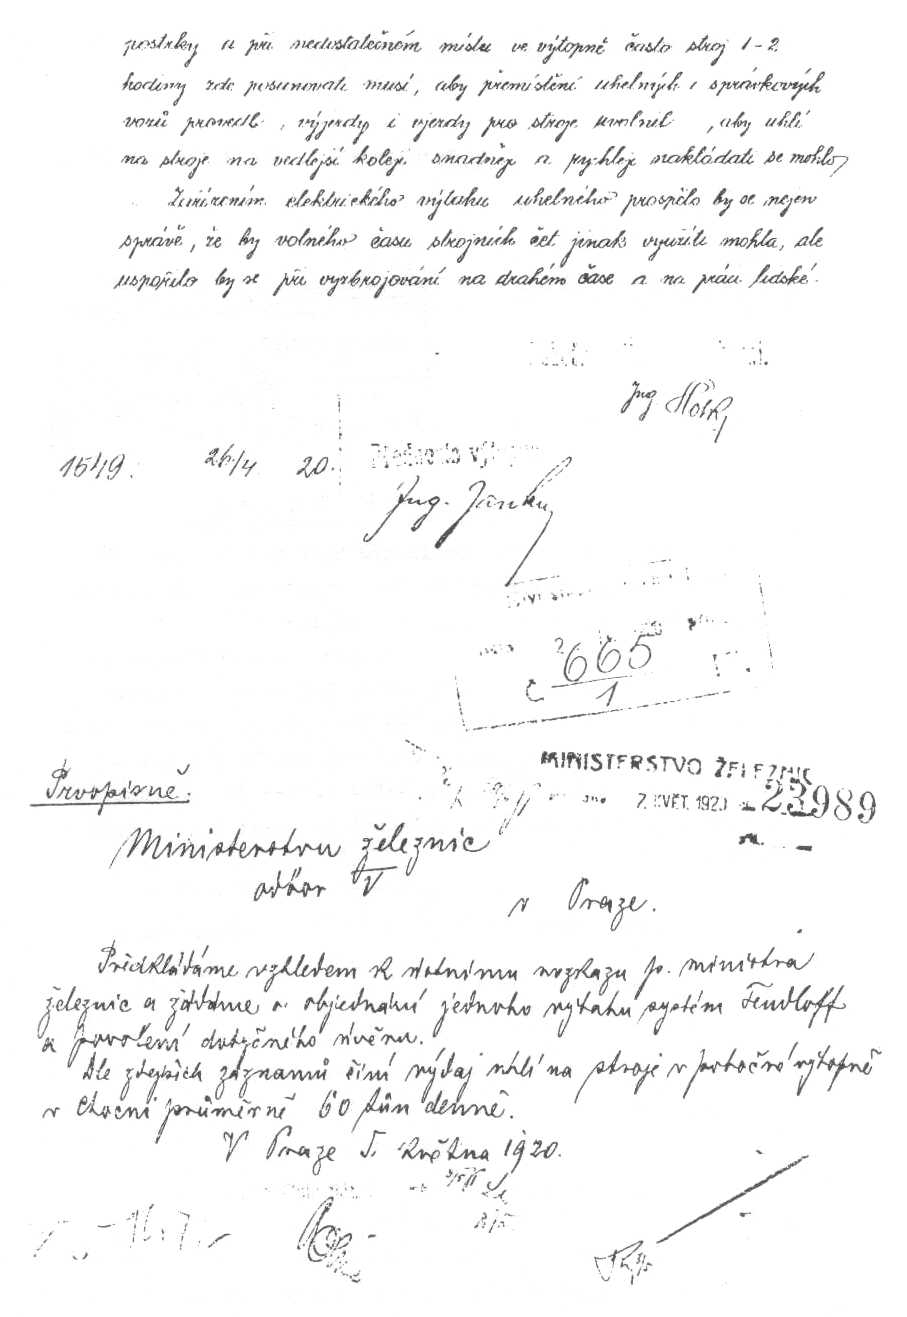 postrky a při nedostatečném místu ve výtopně často stroj 1-2
hodiny zde posunovati musí, aby přemístění uhelných i správkových
vozů provedl, výjezdy i vjezdy pro stroje uvolnil, aby uhlí
na stroje na vedlejší koleji snadněji a rychleji nakládati se mohlo,
Zařízením elektrického výtahu uhelného prospělo by se nejen
správě, že by volného času strojních čet jinak využíti mohla, ale
uspořilo by se při vyzbrojování na drahém čase a na práci lidské.
Ing
1549. 26/4 20.
Ing. Janků
č 665/1
MINISTERSTVO ŽELEZNIC
7. KVĚT. 1920 23989
Prvopisně.
Ministerstvu železnic
odbor V
v Praze.
Předkládáme vzhledem k ústnímu rozkazu p. ministra
železnic a žádáme o objednání jednoho výtahu systém Fendloff
a povolení dotyčného úvěru.
Dle zdejších záznamů činí výdej uhlí na stroje v pobočné výtopně
v Chocni průměrně 60 tun denně.
V Praze 5. května 1920.